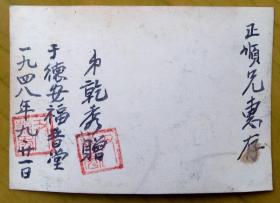 正順兄惠存
弟乾秀贈
于德安福音堂
一九四八年九廿一日